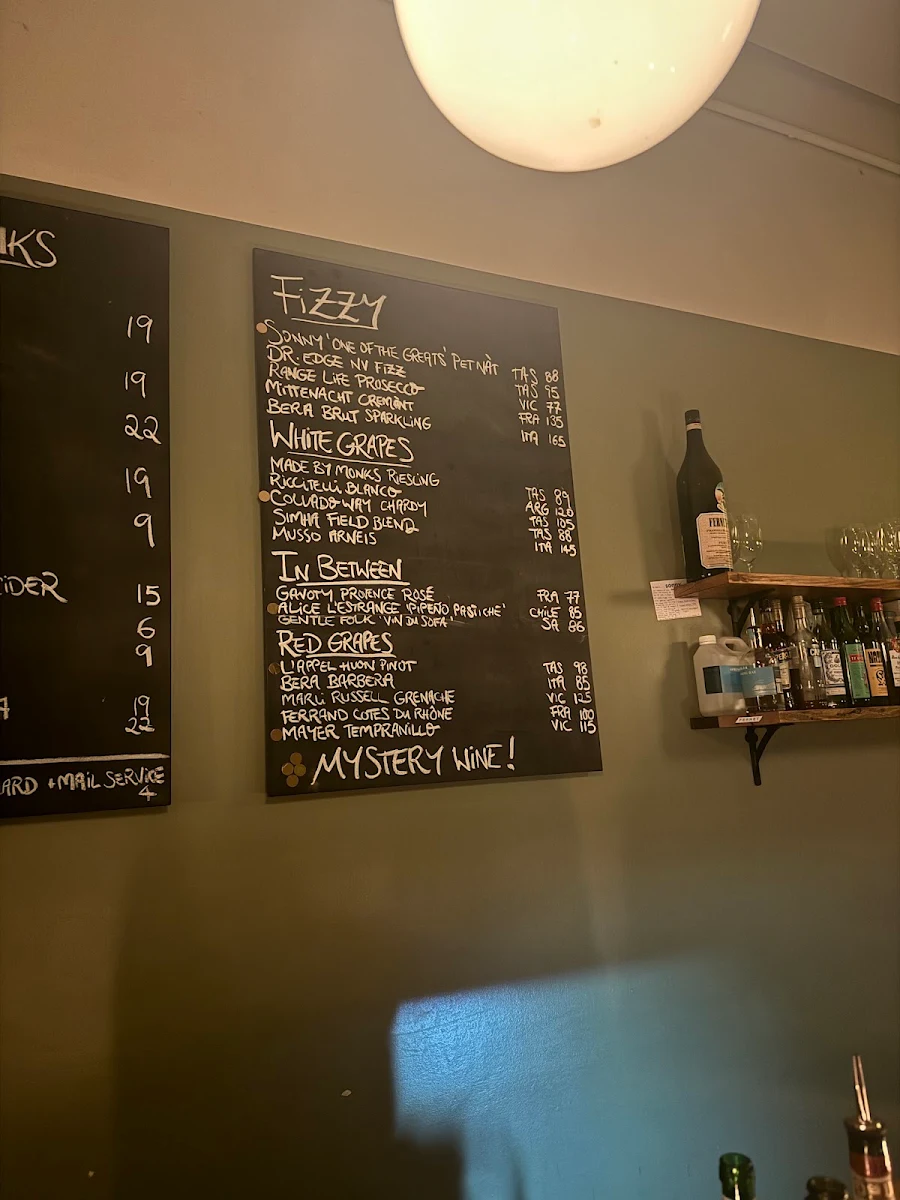 NKS
19
19
22
19
9
CIDER 15
6
9
19
22
ARD + MAIL SERVICE
4
FiZZY
SONNY 'ONE OF THE GREATS' PET NÀT TAS 88
DR. EDGE NV FIZZ TAS 95
RANGE LIFE PROSECCO VIC 77
MITTENACHT CREMÀNT FRA 135
BERA BRUT SPARKLING ITA 165
WHITE GRAPES
MADE BY MONKS RIESLING TAS 89
RICCITELLI BLANCO ARG 120
COLVADO WAY CHARDY TAS 105
SIMHA FIELD BLEND TAS 88
MUSSO ARNEIS ITA 145
IN BETWEEN
GAVOTY PROVENCE ROSÉ FRA 77
ALICE L'ESTRANGE 'PIPEÑO PASTICHE' CHILE 85
GENTLE FOLK 'VIN DU SOFA' SA 86
RED GRAPES
L'APPEL HUON PINOT TAS 98
BERA BARBERA ITA 85
MARLI RUSSELL GRENACHE VIC 125
FERRAND COTES DU RHÔNE FRA 100
MAYER TEMPRANILLO VIC 115
MYSTERY WINE!
FERNET